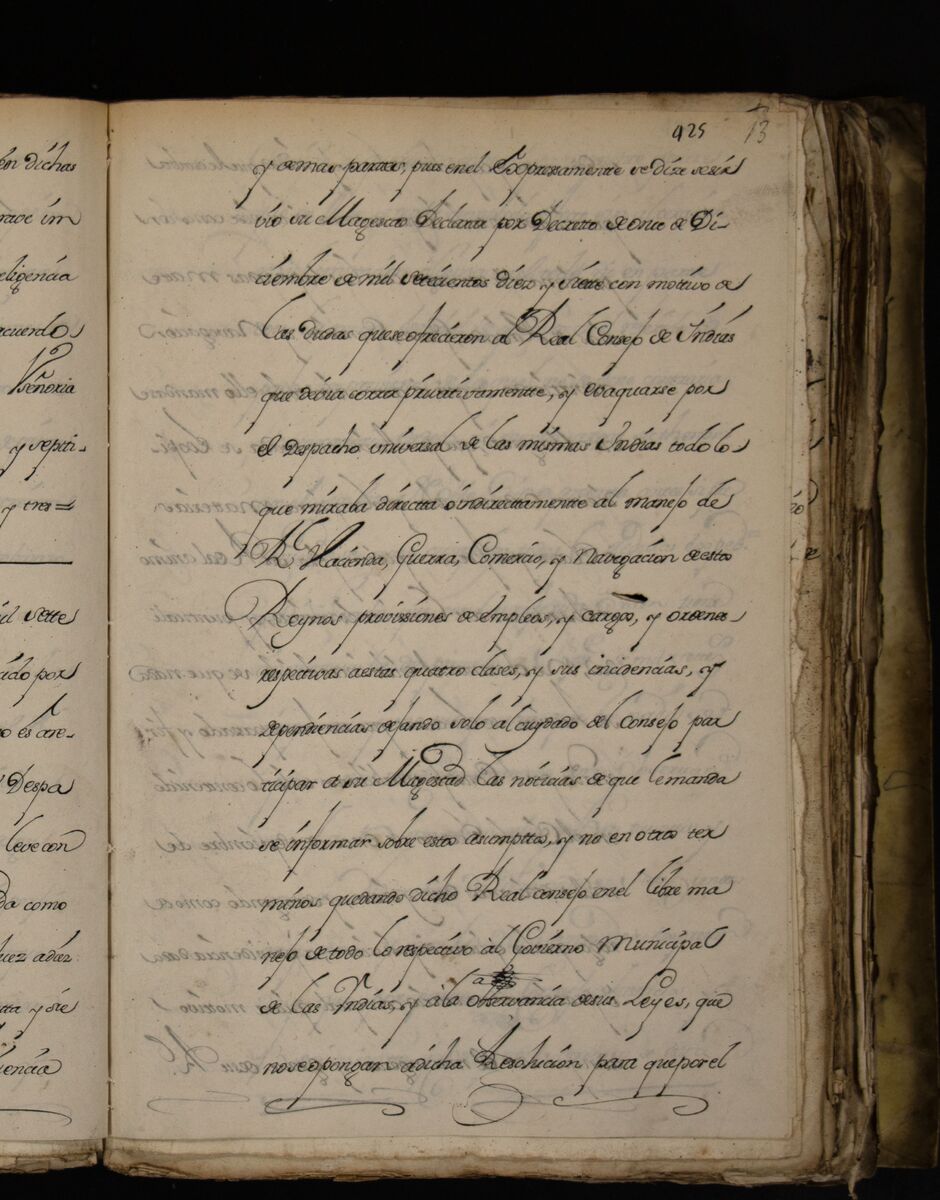 én dichas
rave im
eligencia
acuerdo
Vseñoria
y septi-
y tres=
il sette
ido por
o es are-
Despa
leve con
da como
uez adiez
ta y sie
iencia
925
13
y demas partes, pues en el Expresamente se dize se sir
vio su Magestad Declarar por Decreto de onze de Di-
ciembre de mil setecientos diez y siete con motivo de
las dudas que se ofrecieron al Real Consejo de Indias
que devia correr privativamente, y evaquarse por
el despacho universal de las mismas Indias todo lo
que miraba directa o indirectamente al manejo de
Rl. Hacienda, Guerra, Comercio, y Navegacion de estos
Reynos provissiones de Empleos, y cargos, y ordenes
respectivas a estas quatro clases, y sus incidencias, y
dependiencias dejando solo al cuydado del Consejo par
ticipar a su Magestad las noticias de que le manda
se informar sobre estos asumptos, y no en otros ter
minos quedando dicho Real consejo en el libre ma
nejo de todo lo respectivo al Govierno Municipal
de las Indias, y a la observancia de sus Leyes, que
no se opongan a dicha Resolucion para que por el